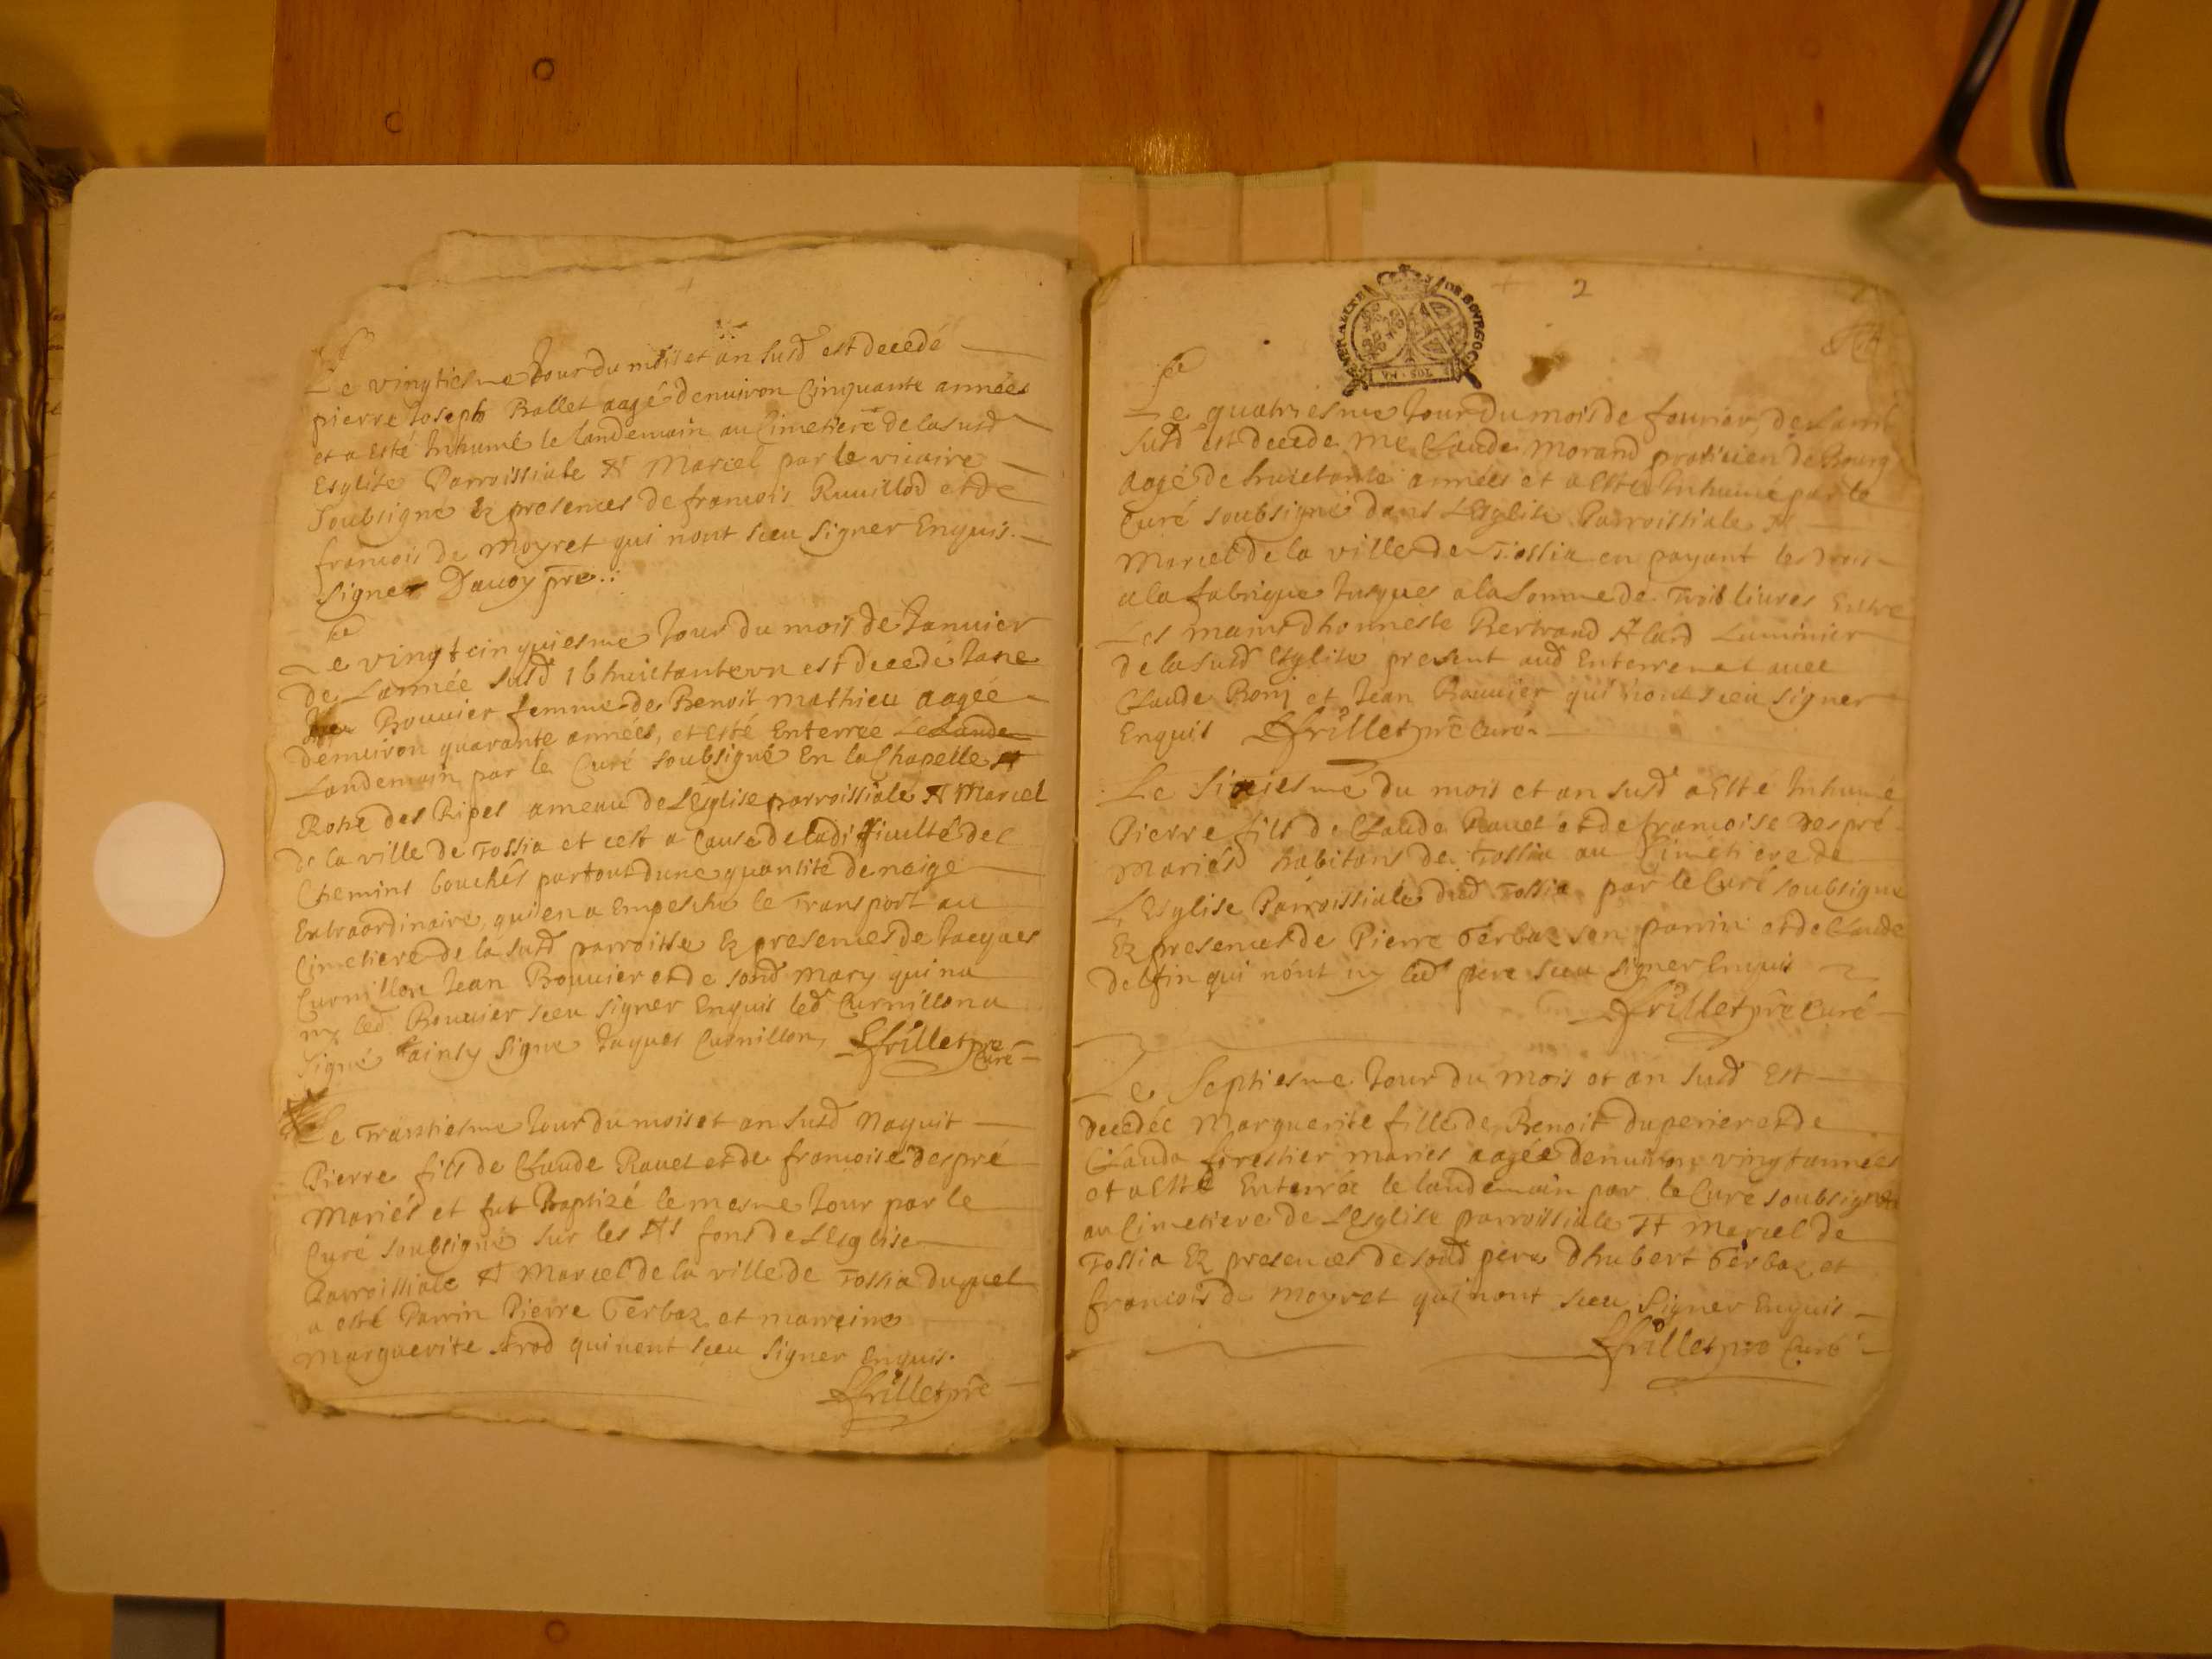 Le vingtiesme Jour du mois et an susd est decedé
pierre Joseph Ballet aagé denuiron Cinquante années
et a Esté Inhumé le landemain au Cimetiere de la susd
Esglise Parroissiale St Marcel par le vicaire
Soubsigné Ez presences de francois Ruuillod et de
francois de Moyret qui nont sceu signer Enquis.
Signe Dauoy pre.
Le vingt cinquiesme Jour du mois de Januier
De Lannée susd 16 huictanteun est decedé Jane
Bouuier femme de Benoit Mathieu aagée
Denuiron quarante années, et Esté Enterree Le Lande
Landemain par le Curé soubsigné En la Chapelle St
Roħe des Ripes ameau de LEsglise parroissiale St Marcel
de la ville de Tossia et cest a Cause de la difficulté des
Chemins bouchés partout dune quantité de neige
Extraordinaire, qui en a Empesché le Transport au
Cimetiere de la susd parroisse Ez presences de Jacques
Curnillon Jean Bouuier et de sond Mary qui na
ny led Bouuier sceu signer Enquis led Curnillon a
Signé ainsy Signe Jaques Curnillon, Ffrillet pre
Curé
Le Trantiesme Jour du mois et an susd Naquit
Pierre fils de Claude Rauet et de francoise Despré
Mariés et fut Baptizé le mesme Jour par le
Curé soubsigné sur les Sts fons de LEsglise
Parroissiale St Marcel de la ville de Tossia duquel
a esté Parrin Pierre Terbaz et marreine
Marguerite Arod qui nont sceu Signer Enquis.
Ffrillet pre
2
GENERALITE DE BOVRGOG
Le quatriesme Jour du mois de feurier, de Lannée
susd est decede Me Claude Morand praticien de Bourg
aagé de huictante années et a Esté Inhumé par le
Curé soubsigné dans LEsglise Parroissiale St
Marcel de la ville de Tossia en payant les drois
a la fabrique Jusques a la Somme de Trois liures Entre
Les mains dhonneste Bertrand Alard Luminier
de la susd Esglise present aud Enterrement auec
Claude Bonj et Jean Bouuier qui nont sceu signer
Enquis Ffrillet pre Curé
Le Sixiesme du mois et an susd a Esté Inhumé
Pierre fils de Claude Rauet et de francoise Despré
Mariés habitans de Tossia au Cimetiere de
LEsglise Parroissiale dud Tossia par le Curé soubsigne
Ez presences de Pierre Terbaz son parrin et de Claude
Delfin qui nónt ny led pere sceu signer Enquis
Ffrillet pre Curé
Le Septiesme Jour du mois et an susd Est
Decedée Marguerite fille de Benoit duperier et de
Clauda forestier mariés aagée denuiron vingt années
et a Esté Enterrée le landemain par le Curé soubsigné
au Cimetiere de LEsglise parroissiale St Marcel de
Tossia Ez presences de sond pere dhubert Terbaz et
francois de moyret qui nont sceu Signer Enquis
Ffrillet pre Curé